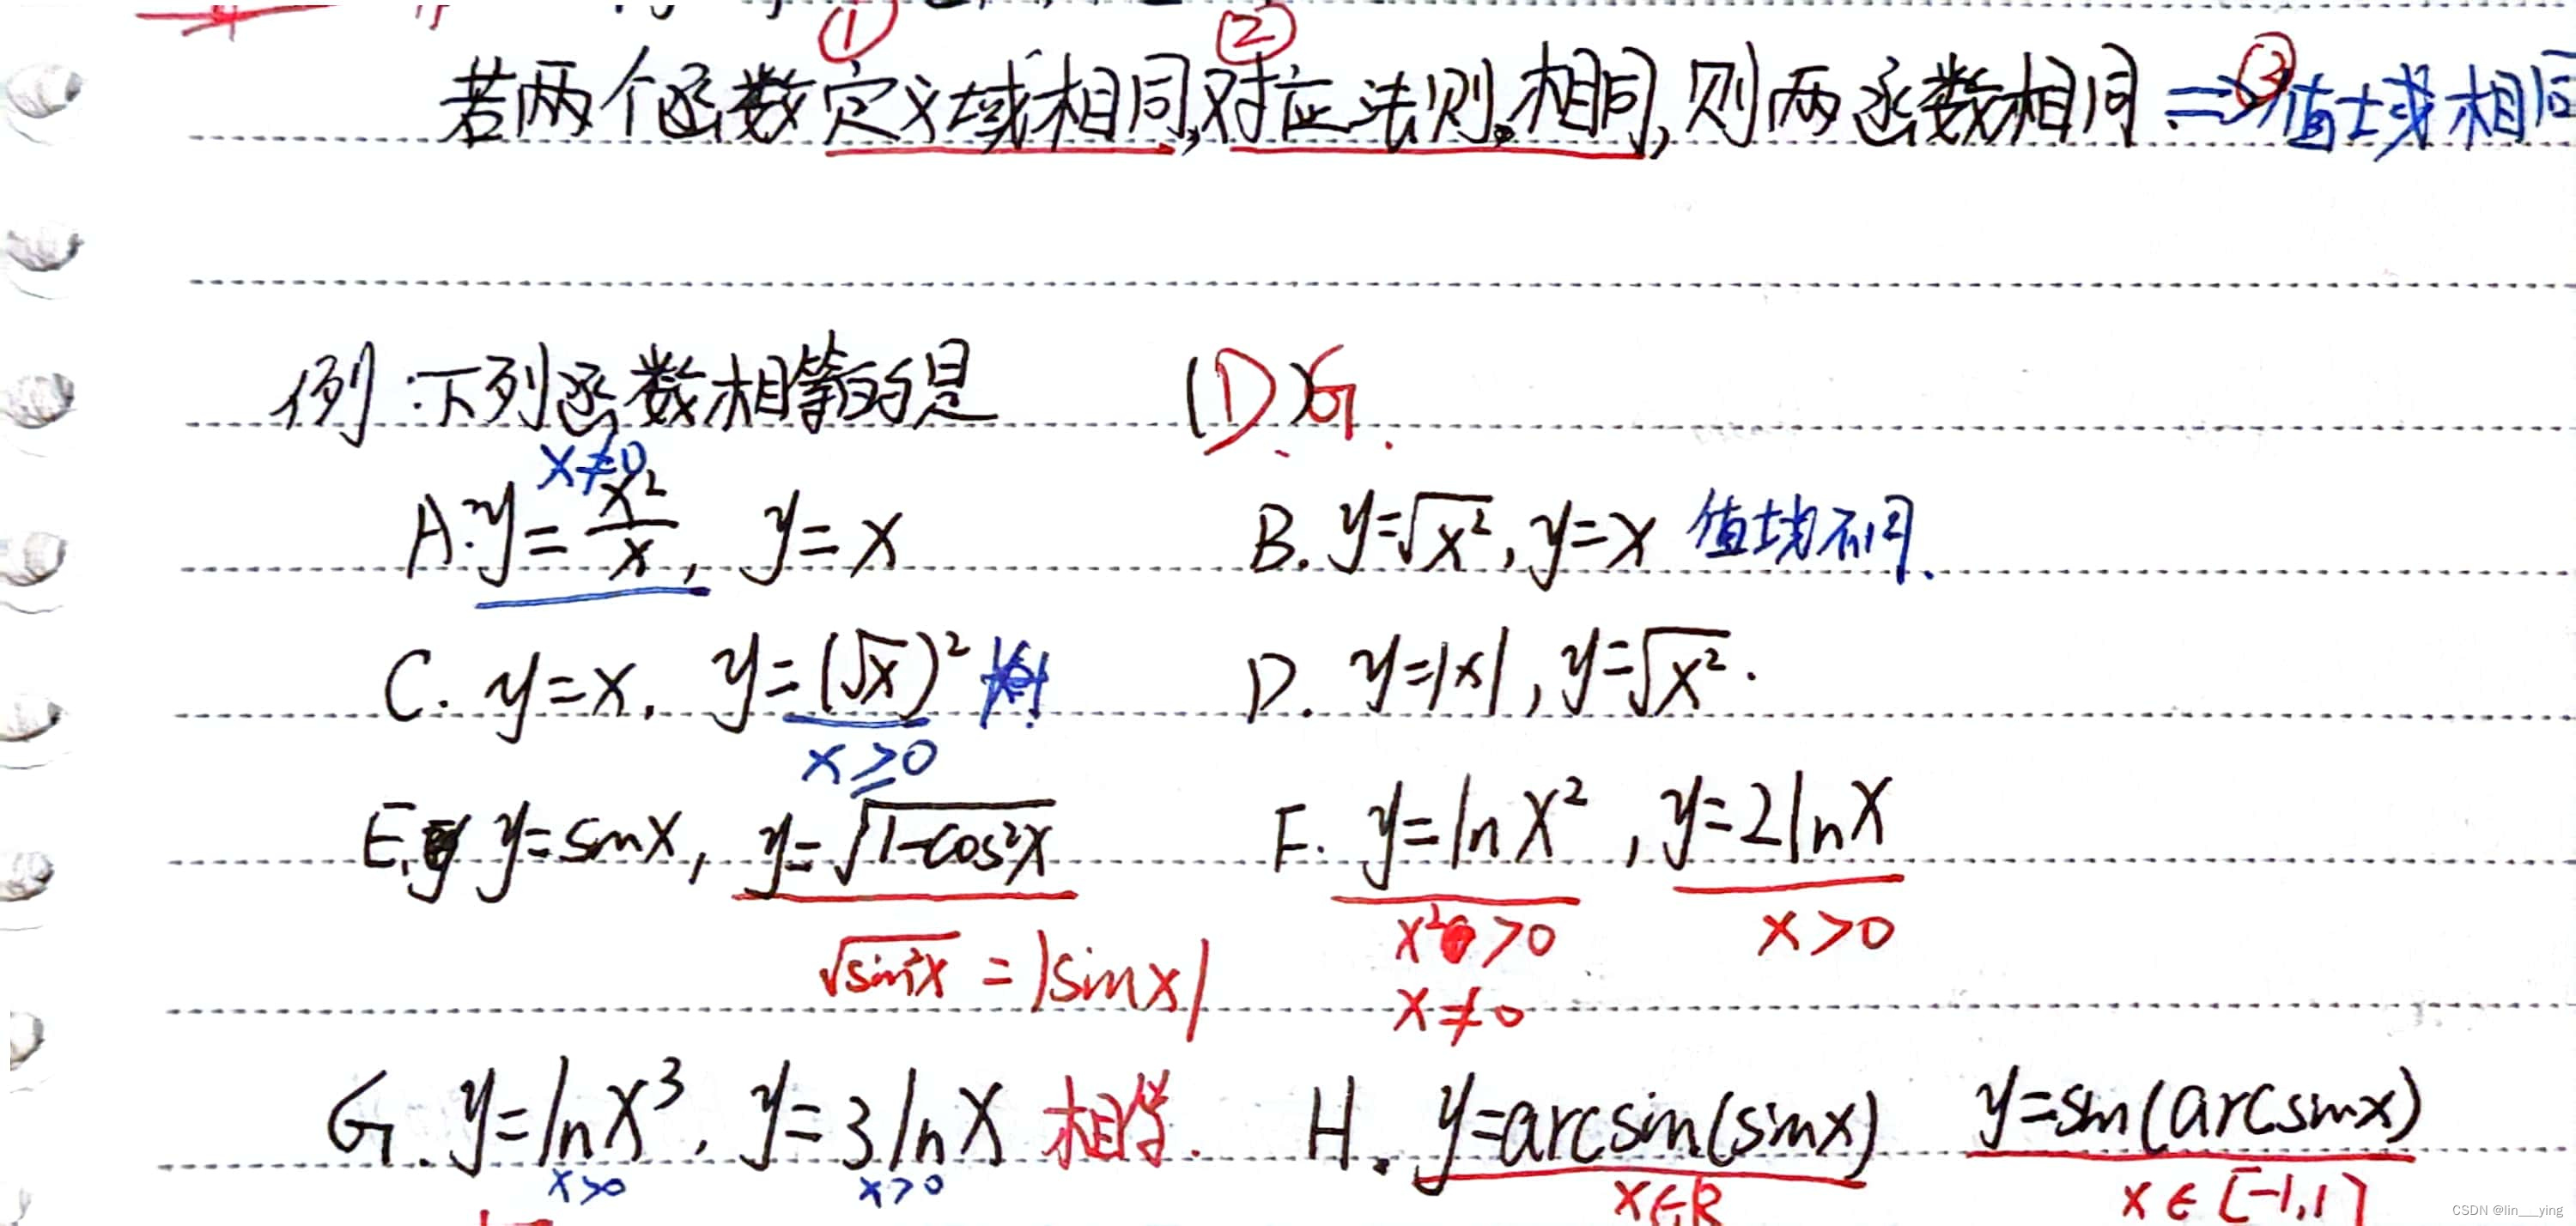 ① ②
若两个函数定义域相同,对应法则相同,则两函数相同 ⇒③值域相同
例:下列函数相等的是 (D)G.
x≠0
A. y=x²/x, y=x B. y=√x², y=x 值域不同.
C. y=x, y=(√x)² D. y=|x|, y=√x².
x≥0
E. y=sinx, y=√1-cos²x F. y=lnx², y=2lnx
x²>0 x>0
√sin²x = |sinx| x≠0
G. y=lnx³, y=3lnx 相等. H. y=arcsin(sinx) y=sin(arcsinx)
x>0 x>0 x∈R x∈[-1,1]
CSDN @lin___ying